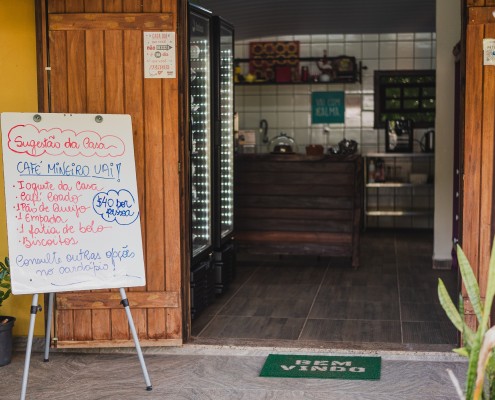 Sugestão da Casa
CAFÉ MINEIRO UAI!
• Iogurte da Casa
• Café Coador
• 1 Pão de Queijo
• 1 Empada
• 1 fatia de bolo
• Biscoitos
$40 por
pessoa
Consulte outras opções
no cardápio!
VAI COM
KALMA
BEM
VINDO